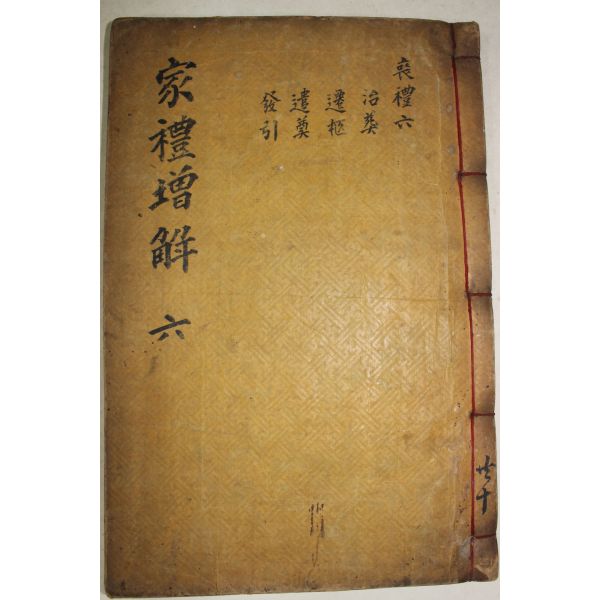 喪禮六
治葬
遷柩
遣奠
發引
家禮增解 六
共十